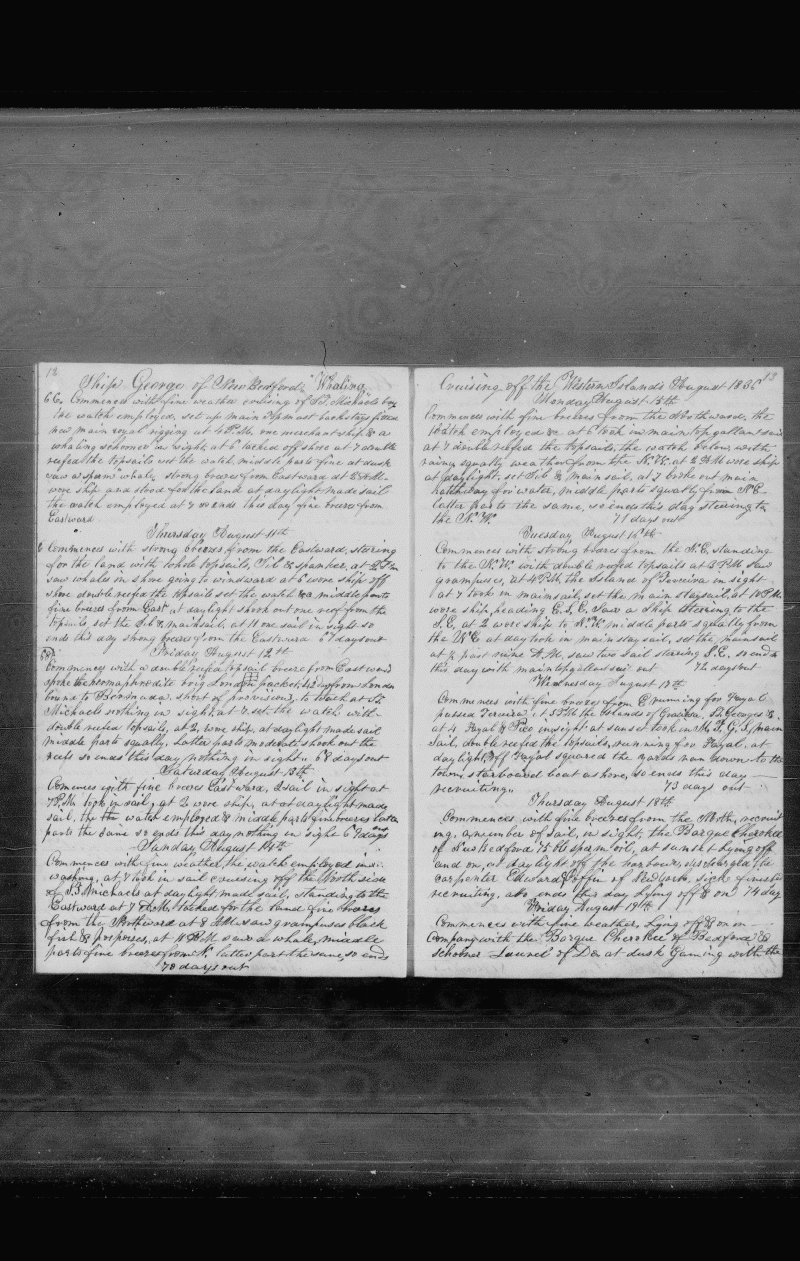 12
Ship George of New Bedford Whaling
66 Commences with fine weather cruising off St. Michaels
the watch employed, set up main topmast backstays fitted
new main royal rigging at 4 P.M. one merchant ship & a
whaling schooner in sight, at 6 tacked off shore at 7 double
reefed the topsails set the watch, middle parts fine at dusk
saw a sperm whale, strong breezes from Eastward at 2 A.M.
wore ship and stood for the land at daylight made sail
the watch employed at 7 so ends this day fine breezes from
Eastward
Thursday August 11th
Commences with strong breezes from the Eastward, steering
for the land with whole topsails, Jib & spanker, at 2 P.M.
saw whales in shore going to windward at 6 wore ship off
shore double reefed the topsails set the watch & middle parts
fine breezes from East at daylight shook out one reef from the
topsails set the Jib & mainsail, at 11 one sail in sight so
ends this day strong breezes from the Eastward 67 days out
Friday August 12th
Commences with a double reefed topsail breeze from Eastward
spoke the hermaphrodite brig London packet, 42 from London
bound to Bermuda, short of provisions, to touch at St
Michaels nothing in sight, at 7 set the watch with
double reefed topsails, at 2 wore ship, at daylight made sail
middle parts squally, Latter parts moderate shook out the
reefs so ends this day nothing in sight 68 days out
Saturday August 13th
Commences with fine breezes Eastward, 2 sail in sight at
7 P.M. took in sail, at 2 wore ship, at daylight made
sail, the watch employed & middle parts fine breezes Latter
parts the same so ends this day nothing in sight 69 days out
Sunday August 14th
Commences with fine weather, the watch employed in
washing, at 7 took in sail cruising off the North side
of St Michaels at daylight made sail, standing to the
Eastward at 7 A.M. tacked for the land fine breezes
from the Northward at 8 A.M. saw grampuses black
fish & porposes, at 11 A.M. saw a whale, middle
parts fine breezes from N. latter part the same, so ends
70 days out
Cruising off the Western Islands August 1836 13
Monday August 15th
Commences with fine breezes from the Northward, the
Watch employed &c at 6 took in maintopgallant sail
at 7 double reefed the topsails, the watch below, with
rainy squally weather from the N.W. at 2 A.M. wore ship
at daylight, set Jib & main sail, at 7 broke out main
hatchway for water, middle parts squally from N.E.
latter parts the same, so ends this day steering to
the N.W. 71 days out
Tuesday August 16th
Commences with strong breezes from the N.E. standing
to the N.W. with double reefed topsails at 3 P.M. saw
grampuses, at 4 P.M. the Island of Terceira in sight
at 7 took in mainsail, set the main staysail, at 10 P.M.
wore ship, heading E.S.E. saw a ship steering to the
S.E. at 2 wore ship to N.W. middle parts squally from
the N.E at day took in main stay sail, set the mainsail
at ½ past nine A.M. saw two sail steering S.E. so ends
this day with maintopgallant sail out 72 days out
Wednesday August 17th
Commences with fine breezes from E running for Fayal
passed Terceira, at 3 P.M. the Islands of Graciosa, St. Georges &
at 4 Fayal & Pico in sight at sunset took in M.T.G.S, main
Sail, double reefed the topsails, running for Fayal, at
daylight off Fayal squared the yards ran down to the
town, starboard boat ashore, so ends this day
recruiting. 73 days out
Thursday August 18th
Commences with fine breezes from the North, recruit
ing, a number of sail, in sight, the Barque Cherokee
of New Bedford 75 bbls sperm oil, at sunset Lying off
and on, at day light off the harbour, discharged the
carpenter Edward Coffin of New York, sick finished
recruiting, so ends this day lying off & on 74 day
Friday August 19th
Commences with fine weather, lying off & on in
Company with the Barque Cherokee of Bedford &
schooner Laurel of Do. at dusk Gaming with the